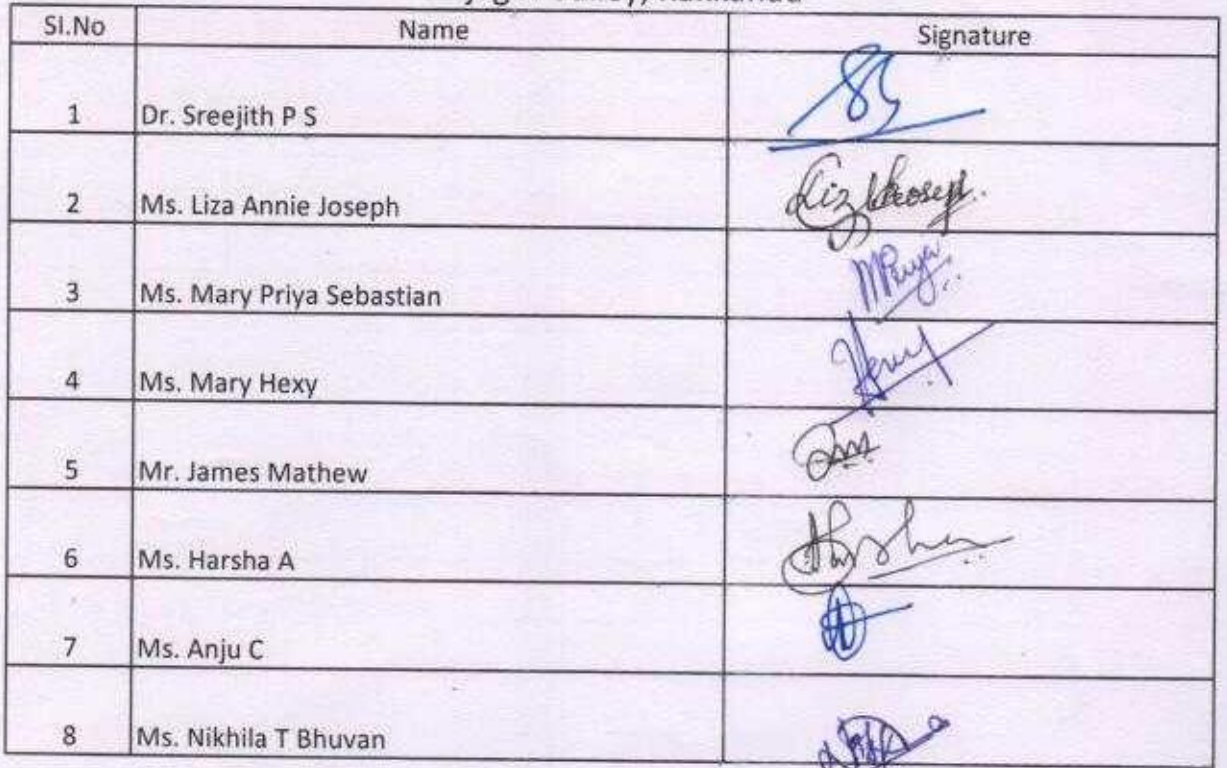 Sl.No Name Signature
1 Dr. Sreejith P S
2 Ms. Liza Annie Joseph
3 Ms. Mary Priya Sebastian MPriya
4 Ms. Mary Hexy Hexy
5 Mr. James Mathew
6 Ms. Harsha A Harsha
7 Ms. Anju C
8 Ms. Nikhila T Bhuvan